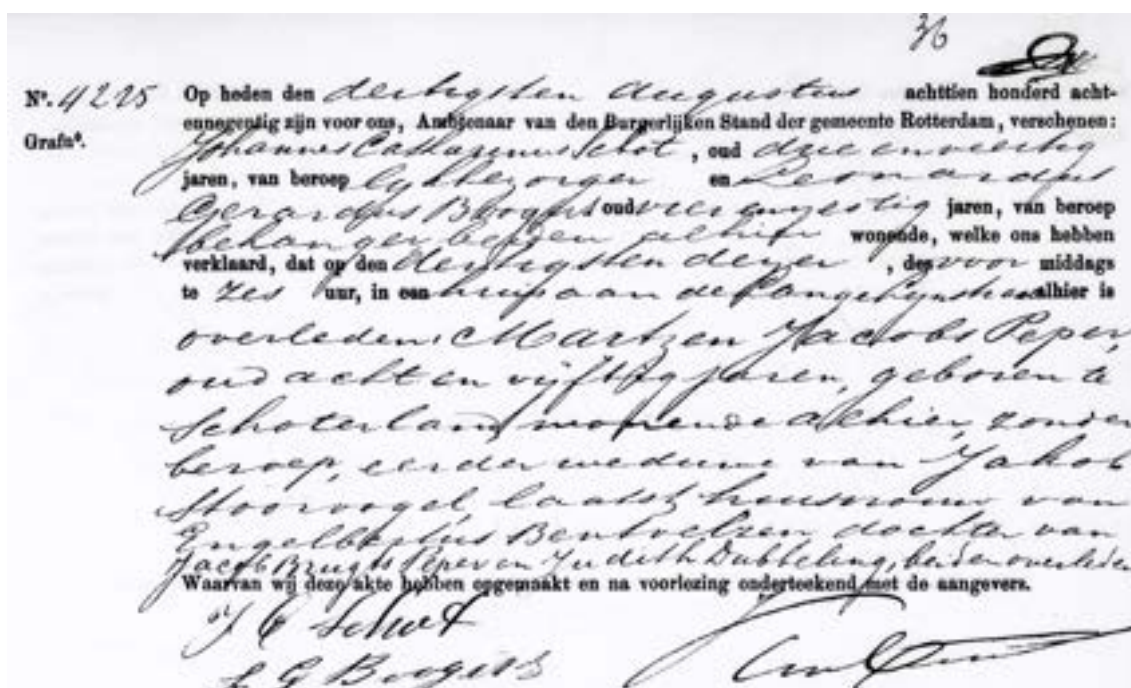 36
Nº. 4225 Op heden den dertigsten Augustus achttien honderd acht-
ennegentig zijn voor ons, Ambtenaar van den Burgerlijken Stand der gemeente Rotterdam, verschenen:
Grafnº.
Johannes Catharinus Schot, oud drie en veertig
jaren, van beroep lijkbezorger en Leonardus
Gerardus Boogers oud vier en zestig jaren, van beroep
behanger beiden alhier wonende, welke ons hebben
verklaard, dat op den dertigsten dezer, des voor middags
te zes uur, in een huis aan de Lange alhier is
overleden: Martzen Jacobs Peper,
oud acht en vijftig jaren, geboren te
Schoterland wonende alhier, zonder
beroep, eerder weduwe van Jakob
Stoorvogel, laatst huisvrouw van
Engelbertus Bentvelzen dochter van
Jacob Bruges Peper en Judith Dubbeling, beiden overleden
Waarvan wij deze akte hebben opgemaakt en na voorlezing onderteekend met de aangevers.
J C Schot
L G Boogers